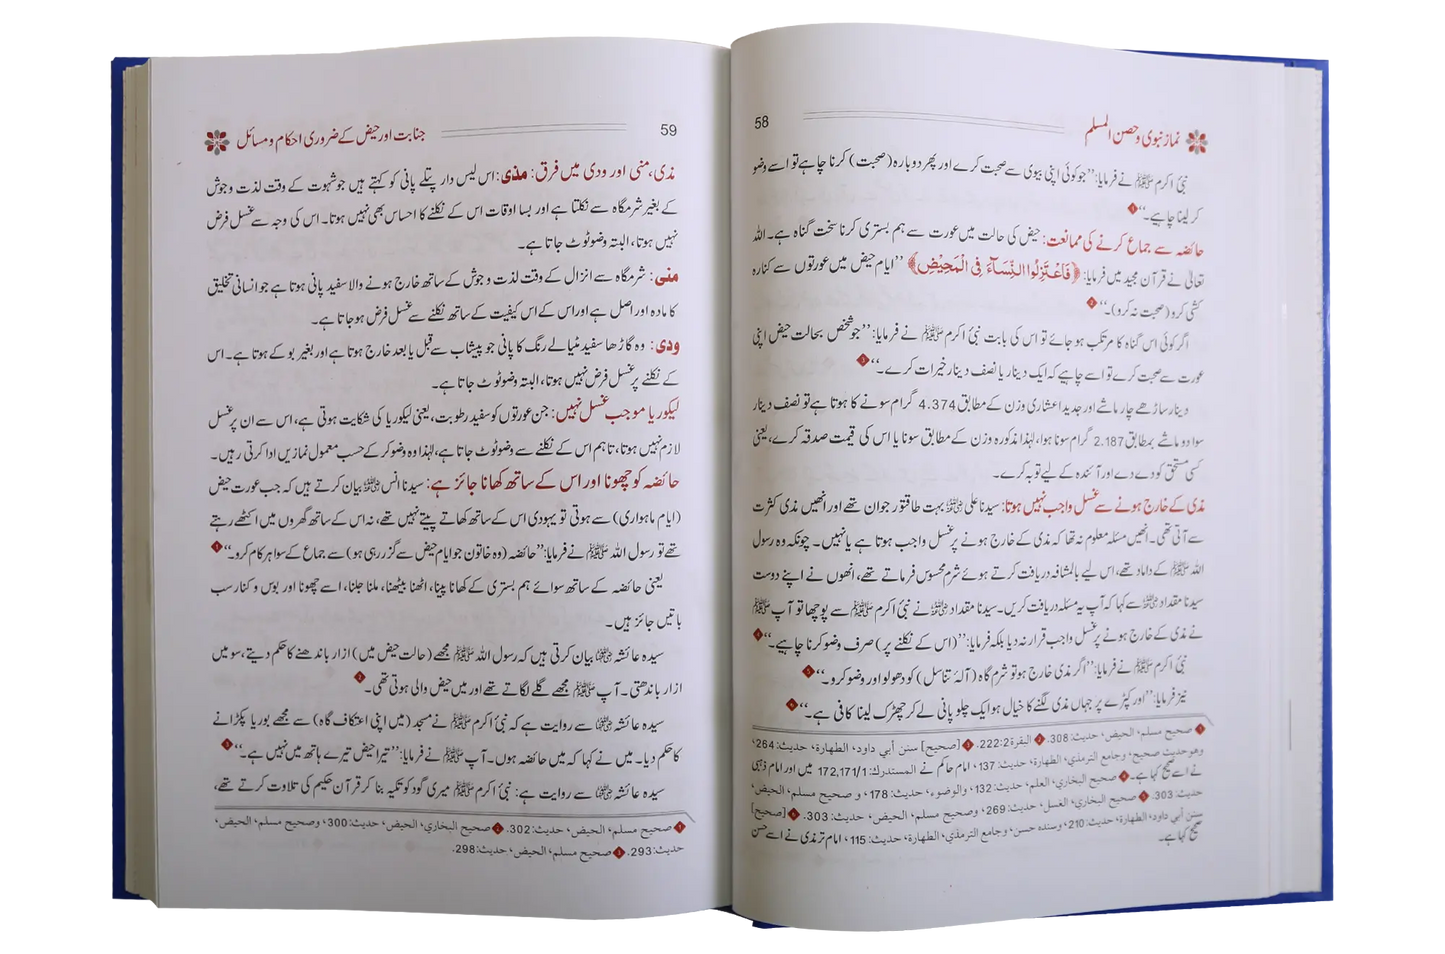 نماز نبوی و حصن المسلم
58
نبیٔ اکرم ﷺ نے فرمایا: ’’جو کوئی اپنی بیوی سے صحبت کرے اور پھر دوبارہ (صحبت) کرنا چاہے تو اسے وضو
کر لینا چاہیے۔‘‘
حائضہ سے جماع کرنے کی ممانعت: حیض کی حالت میں عورت سے ہم بستری کرنا سخت گناہ ہے۔ اللہ
تعالیٰ نے قرآن مجید میں فرمایا: ﴿فَاعْتَزِلُوا النِّسَآءَ فِی الْمَحِیْضِ﴾ ’’ایام حیض میں عورتوں سے کنارہ
کشی کرو (صحبت نہ کرو)۔‘‘
اگر کوئی اس گناہ کا مرتکب ہو جائے تو اس کی بابت نبیٔ اکرم ﷺ نے فرمایا: ’’جو شخص بحالت حیض اپنی
عورت سے صحبت کرے تو اسے چاہیے کہ ایک دینار یا نصف دینار خیرات کرے۔‘‘
دینار ساڑھے چار ماشے اور جدید اعشاری وزن کے مطابق 4.374 گرام سونے کا ہوتا ہے تو نصف دینار
سوا دو ماشے بمطابق 2.187 گرام سونا ہوا، لہٰذا مذکورہ وزن کے مطابق سونا یا اس کی قیمت صدقہ کرے، یعنی
کسی مستحق کو دے دے اور آئندہ کے لیے توبہ کرے۔
مذی کے خارج ہونے سے غسل واجب نہیں ہوتا: سیدنا علی رضی اللہ عنہ بہت طاقتور جوان تھے اور انھیں مذی کثرت
سے آتی تھی۔ انھیں مسئلہ معلوم نہ تھا کہ مذی کے خارج ہونے پر غسل واجب ہوتا ہے یا نہیں۔ چونکہ وہ رسول
اللہ ﷺ کے داماد تھے، اس لیے بالمشافہ دریافت کرتے ہوئے شرم محسوس فرماتے تھے، انھوں نے اپنے دوست
سیدنا مقداد رضی اللہ عنہ سے کہا کہ آپ یہ مسئلہ دریافت کریں۔ سیدنا مقداد رضی اللہ عنہ نے نبیٔ اکرم ﷺ سے پوچھا تو آپ ﷺ
نے مذی کے خارج ہونے پر غسل واجب قرار نہ دیا بلکہ فرمایا: ’’(اس کے نکلنے پر) صرف وضو کرنا چاہیے۔‘‘
نبیٔ اکرم ﷺ نے فرمایا: ’’اگر مذی خارج ہو تو شرم گاہ (آلۂ تناسل) کو دھو لو اور وضو کرو۔‘‘
نیز فرمایا: ’’اور کپڑے پر جہاں مذی لگنے کا خیال ہو ایک چلو پانی لے کر چھڑک لینا کافی ہے۔‘‘
صحیح مسلم، الحیض، حدیث: 308. البقرۃ 222:2. [صحیح] سنن أبي داود، الطهارة، حدیث: 264،
وهو حدیث صحیح، وجامع الترمذي، الطهارة، حدیث: 137، امام حاکم نے المستدرك: 172,171/1 میں اور امام ذہبی
نے اسے صحیح کہا ہے۔ صحیح البخاري، العلم، حدیث: 132، والوضوء، حدیث: 178، و صحیح مسلم، الحیض،
حدیث: 303. صحیح البخاري، الغسل، حدیث: 269، وصحیح مسلم، الحیض، حدیث: 303. [صحیح]
سنن أبي داود، الطهارة، حدیث: 210، وسنده حسن، وجامع الترمذي، الطهارة، حدیث: 115، امام ترمذی نے اسے حسن
صحیح کہا ہے۔
جنابت اور حیض کے ضروری احکام و مسائل
59
مذی، منی اور ودی میں فرق: مذی: اس لیس دار پتلے پانی کو کہتے ہیں جو شہوت کے وقت لذت و جوش
کے بغیر شرمگاہ سے نکلتا ہے اور بسا اوقات اس کے نکلنے کا احساس بھی نہیں ہوتا۔ اس کی وجہ سے غسل فرض
نہیں ہوتا، البتہ وضو ٹوٹ جاتا ہے۔
منی: شرمگاہ سے انزال کے وقت لذت و جوش کے ساتھ خارج ہونے والا سفید پانی ہوتا ہے جو انسانی تخلیق
کا مادہ اور اصل ہے اور اس کے اس کیفیت کے ساتھ نکلنے سے غسل فرض ہو جاتا ہے۔
ودی: وہ گاڑھا سفید مٹیالے رنگ کا پانی جو پیشاب سے قبل یا بعد خارج ہوتا ہے اور بغیر بو کے ہوتا ہے۔ اس
کے نکلنے پر غسل فرض نہیں ہوتا، البتہ وضو ٹوٹ جاتا ہے۔
لیکوریا موجب غسل نہیں: جن عورتوں کو سفید رطوبت، یعنی لیکوریا کی شکایت ہوتی ہے، اس سے ان پر غسل
لازم نہیں ہوتا، تاہم اس کے نکلنے سے وضو ٹوٹ جاتا ہے، لہٰذا وہ وضو کر کے حسب معمول نمازیں ادا کرتی رہیں۔
حائضہ کو چھونا اور اس کے ساتھ کھانا جائز ہے: سیدنا انس رضی اللہ عنہ بیان کرتے ہیں کہ جب عورت حیض
(ایام ماہواری) سے ہوتی تو یہودی اس کے ساتھ کھاتے پیتے نہیں تھے، نہ اس کے ساتھ گھروں میں اکٹھے رہتے
تھے تو رسول اللہ ﷺ نے فرمایا: ’’حائضہ (وہ خاتون جو ایام حیض سے گزر رہی ہو) سے جماع کے سوا ہر کام کرو۔‘‘
یعنی حائضہ کے ساتھ سوائے ہم بستری کے کھانا پینا، اٹھنا بیٹھنا، ملنا جلنا، اسے چھونا اور بوس و کنار سب
باتیں جائز ہیں۔
سیدہ عائشہ رضی اللہ عنہا بیان کرتی ہیں کہ رسول اللہ ﷺ مجھے (حالت حیض میں) ازار باندھنے کا حکم دیتے، سو میں
ازار باندھتی۔ آپ ﷺ مجھے گلے لگاتے تھے اور میں حیض والی ہوتی تھی۔
سیدہ عائشہ رضی اللہ عنہا سے روایت ہے کہ نبیٔ اکرم ﷺ نے مسجد (میں اپنی اعتکاف گاہ) سے مجھے بوریا پکڑانے
کا حکم دیا۔ میں نے کہا کہ میں حائضہ ہوں۔ آپ ﷺ نے فرمایا: ’’تیرا حیض تیرے ہاتھ میں نہیں ہے۔‘‘
سیدہ عائشہ رضی اللہ عنہا سے روایت ہے: نبیٔ اکرم ﷺ میری گود کو تکیہ بنا کر قرآن حکیم کی تلاوت کرتے تھے،
صحیح مسلم، الحیض، حدیث: 302. صحیح البخاري، الحیض، حدیث: 300، وصحیح مسلم، الحیض،
حدیث: 293. صحیح مسلم، الحیض، حدیث: 298.